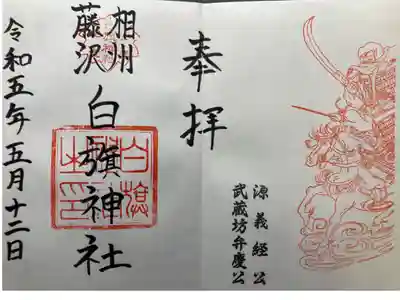 奉拝
源義経公
武蔵坊弁慶公
相州
藤沢
白旗神社
令和五年五月十二日